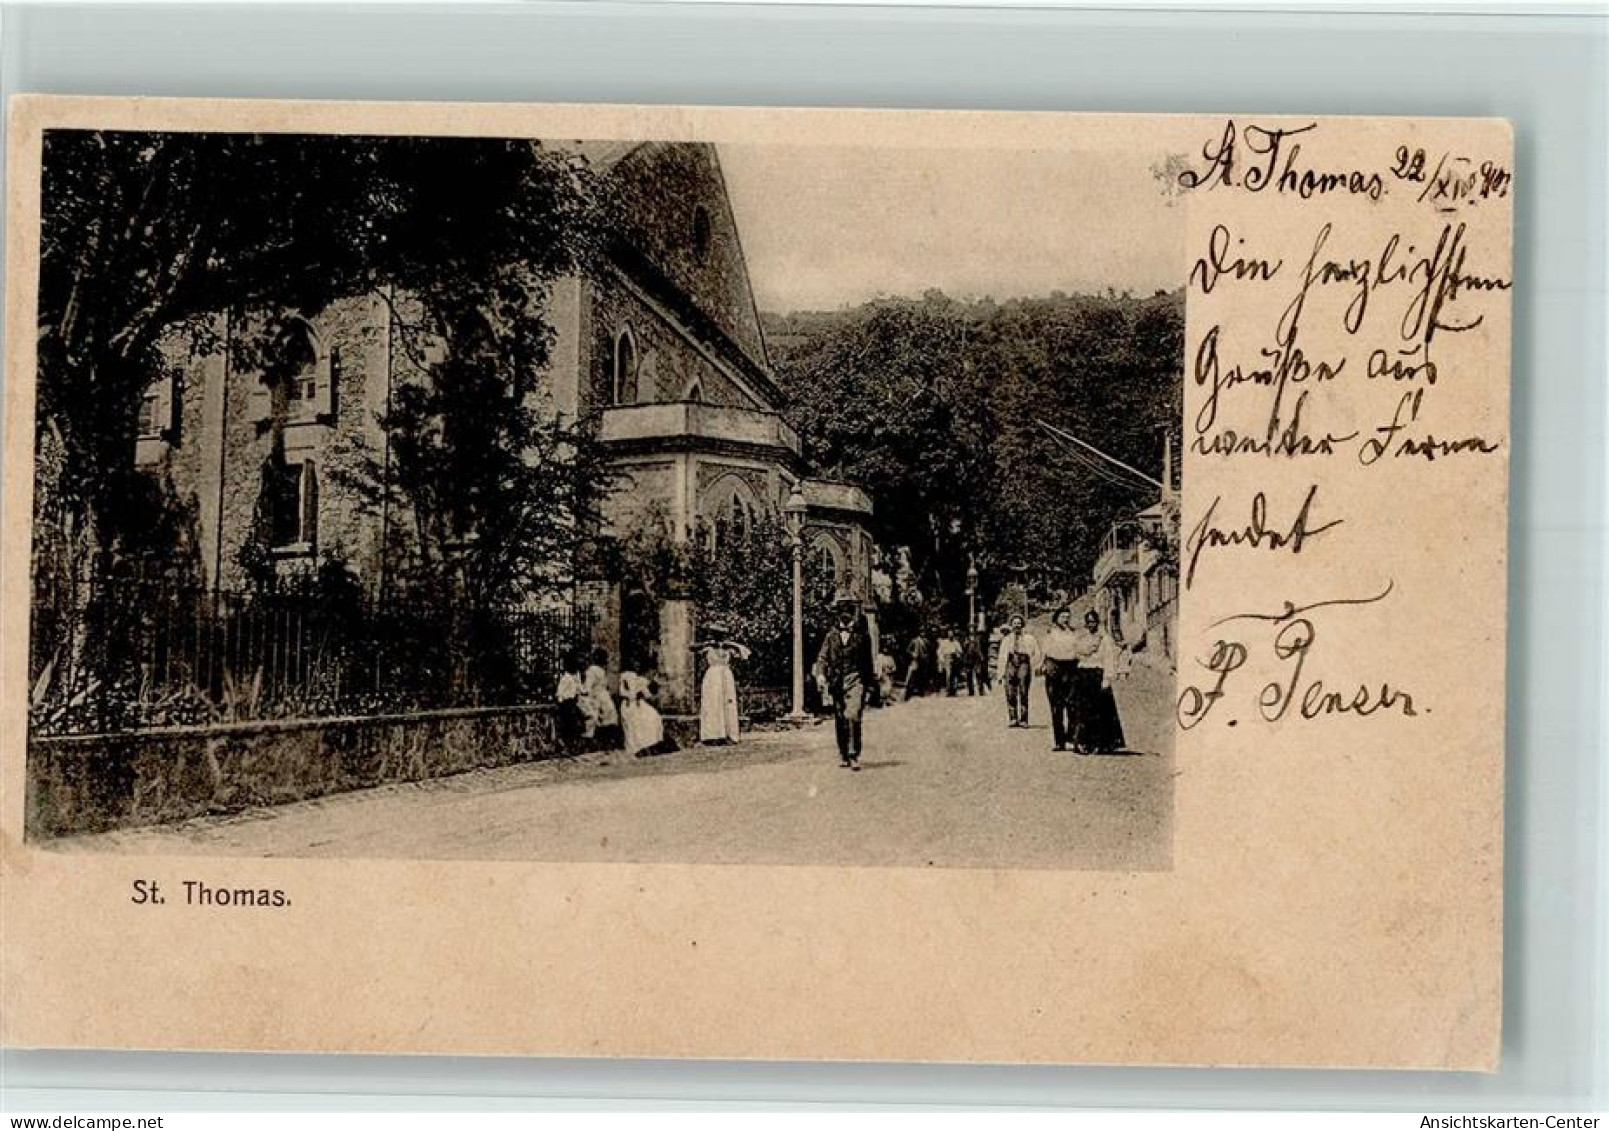 St. Thomas. 22/XII.
Die herzlichsten
Grüße aus
weiter Ferne
sendet
F. Penzer.
St. Thomas.
www.delcampe.net
Ansichtskarten-Center